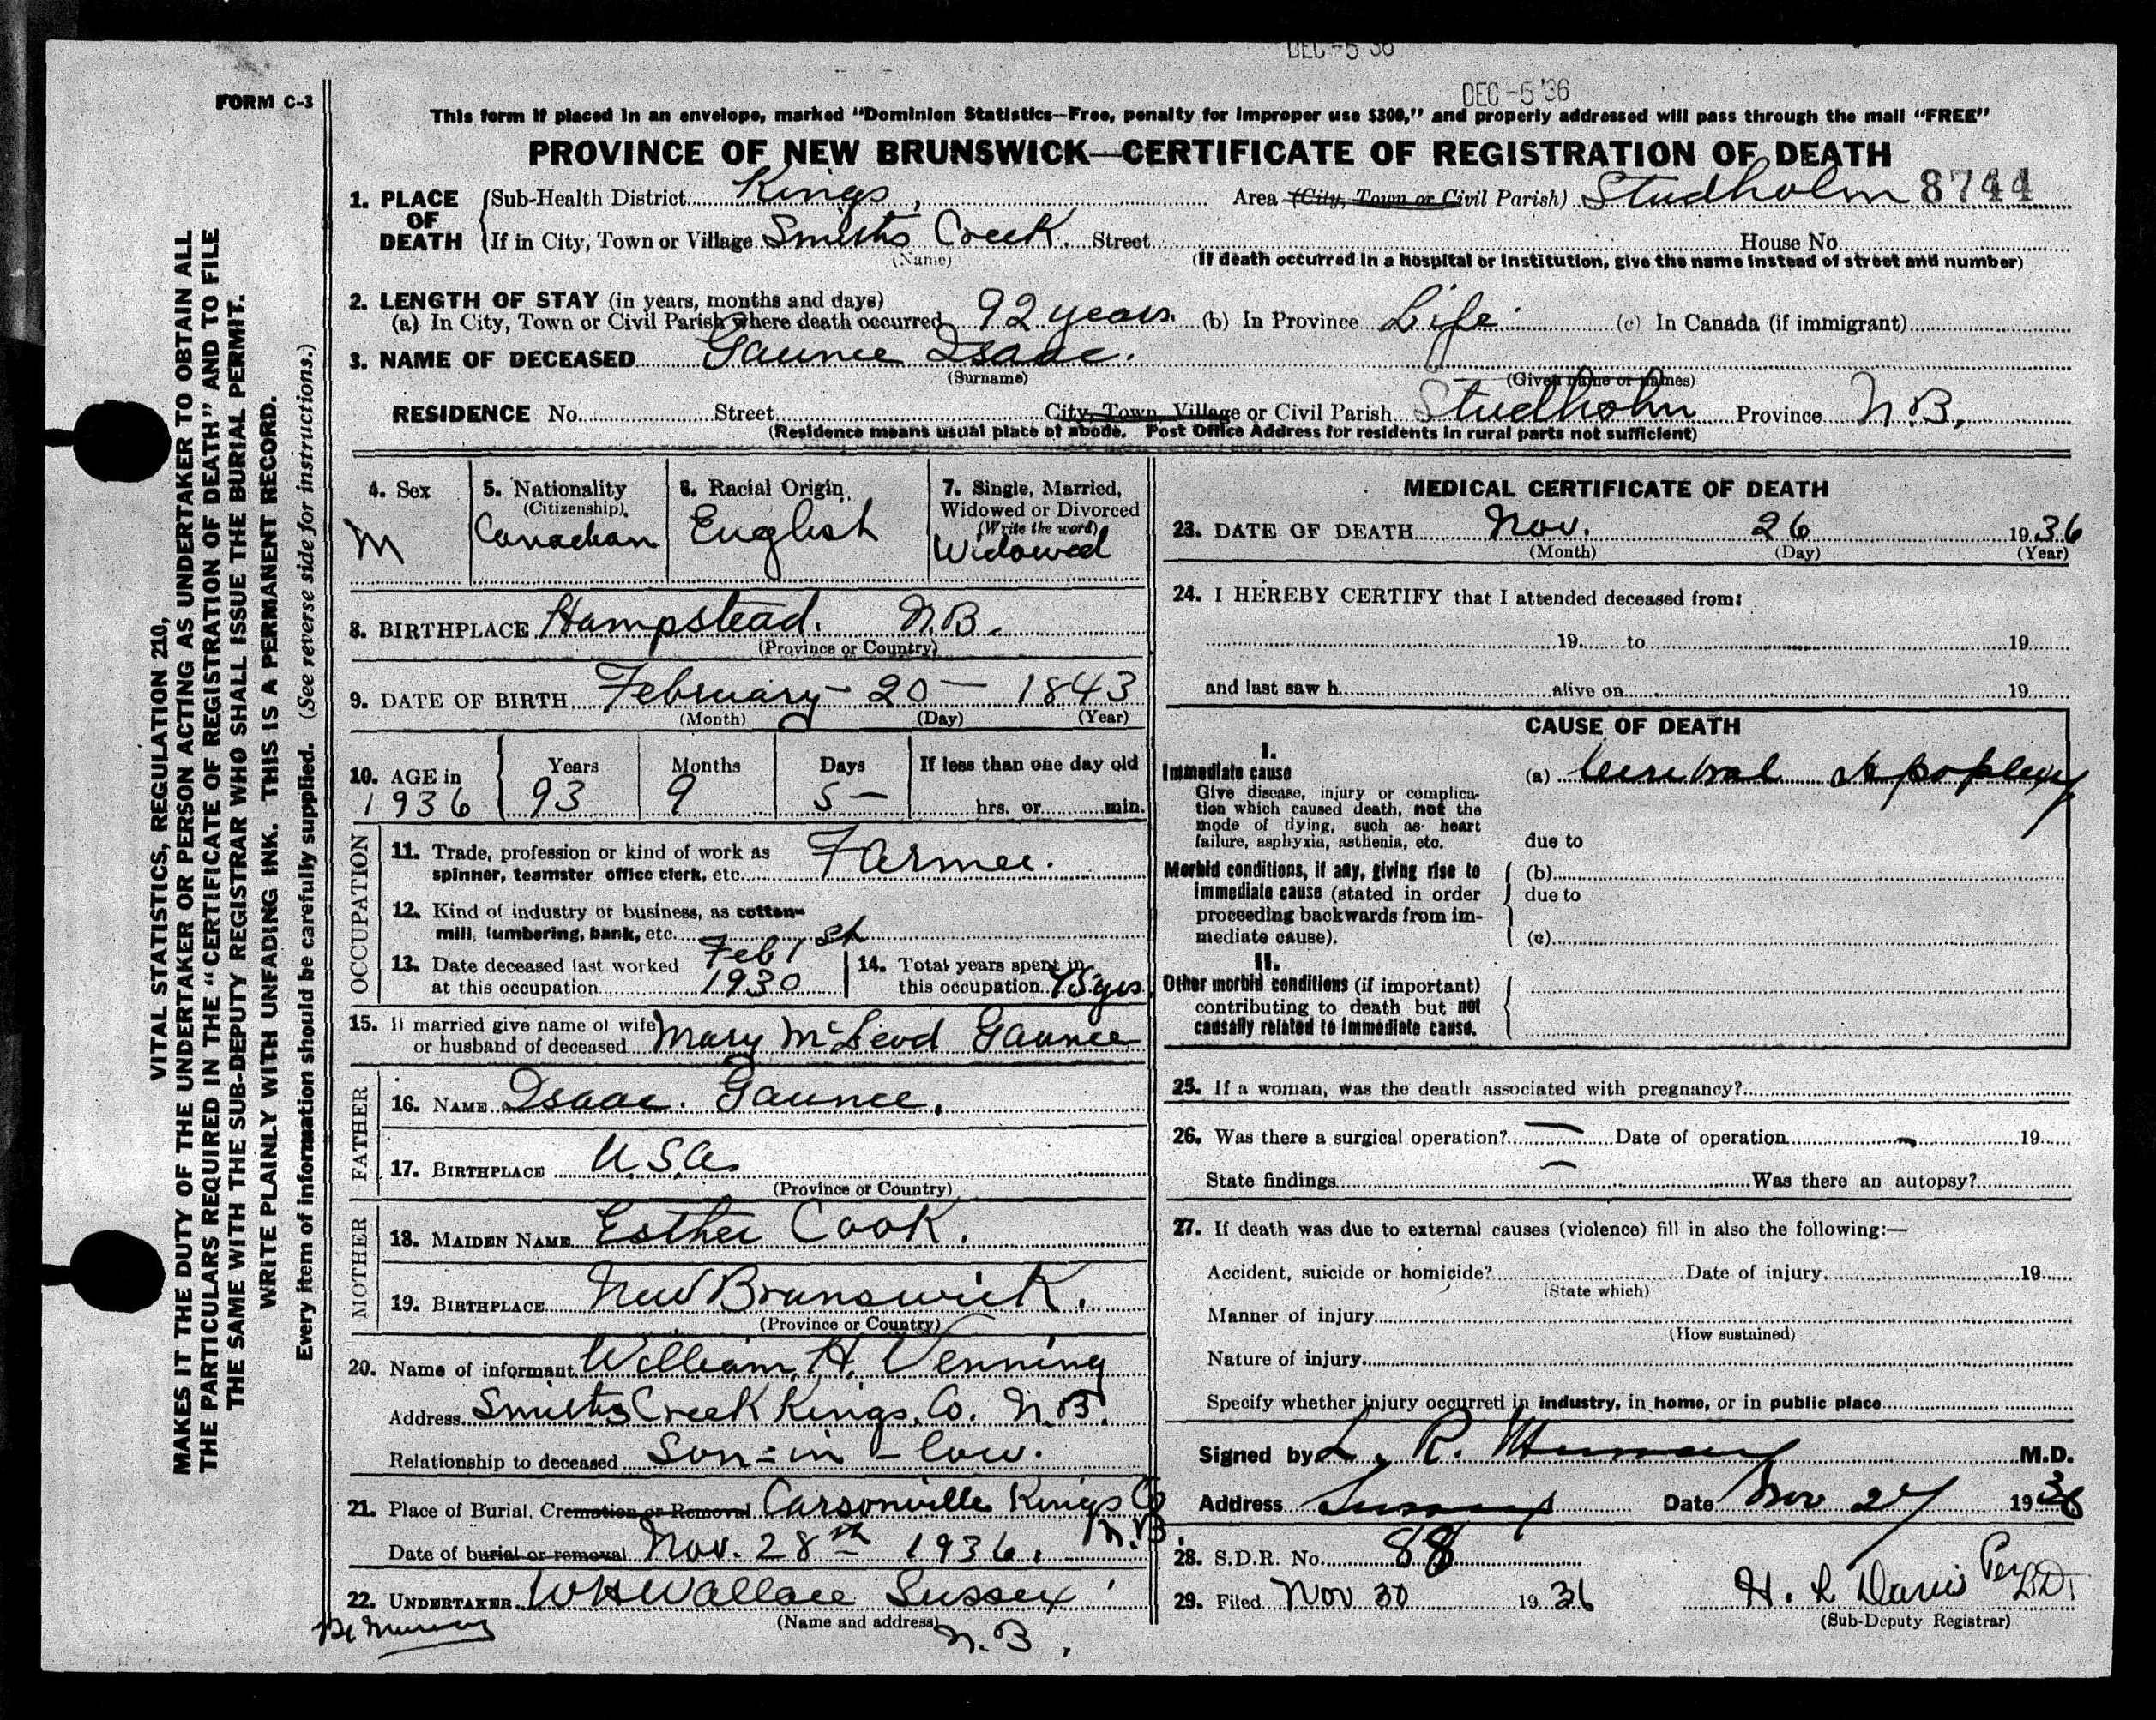 DEC -5 36
DEC -5 '36
FORM C-3
This form if placed in an envelope, marked "Dominion Statistics—Free, penalty for improper use $300," and properly addressed will pass through the mail "FREE"
PROVINCE OF NEW BRUNSWICK—CERTIFICATE OF REGISTRATION OF DEATH
8744
1. PLACE OF DEATH Sub-Health District Kings, Area (City, Town or Civil Parish) Studholm
If in City, Town or Village Smiths Creek. Street House No.
(Name) (If death occurred in a hospital or institution, give the name instead of street and number)
2. LENGTH OF STAY (in years, months and days)
(a) In City, Town or Civil Parish where death occurred 92 years. (b) In Province Life (c) In Canada (if immigrant)
3. NAME OF DECEASED Gaunce Isaac.
(Surname) (Given name or names)
RESIDENCE No. Street City, Town, Village or Civil Parish Studholm Province N.B.
(Residence means usual place of abode. Post Office Address for residents in rural parts not sufficient)
4. Sex
M
5. Nationality
(Citizenship)
Canadian
6. Racial Origin
English
7. Single, Married,
Widowed or Divorced
(Write the word)
Widowed
8. BIRTHPLACE Hampstead. N.B.
(Province or Country)
9. DATE OF BIRTH February - 20 - 1843
(Month) (Day) (Year)
10. AGE in 1936
Years Months Days If less than one day old
93 9 5 — hrs. or min.
OCCUPATION
11. Trade, profession or kind of work as
spinner, teamster, office clerk, etc. Farmer.
12. Kind of industry or business, as cotton-
mill, lumbering, bank, etc.
13. Date deceased last worked
at this occupation Feb 1st 1930
14. Total years spent in
this occupation 75 yrs
15. If married give name of wife
or husband of deceased Mary McLeod Gaunce
FATHER
16. NAME Isaac. Gaunce.
17. BIRTHPLACE U.S.A.
(Province or Country)
MOTHER
18. MAIDEN NAME Esther Cook.
19. BIRTHPLACE New Brunswick.
(Province or Country)
20. Name of informant William. H. Venning
Address Smiths Creek Kings. Co. N.B.
Relationship to deceased Son-in-law.
21. Place of Burial, Cremation or Removal Carsonville Kings Co N.B.
Date of burial or removal Nov. 28th 1936.
22. UNDERTAKER WH Wallace Sussex
(Name and address)
N.B.
MEDICAL CERTIFICATE OF DEATH
23. DATE OF DEATH Nov. 26 1936
(Month) (Day) (Year)
24. I HEREBY CERTIFY that I attended deceased from:
19 to 19
and last saw h alive on 19
CAUSE OF DEATH
I.
Immediate cause (a) Cerebral Apoplexy
Give disease, injury or complica-
tion which caused death, not the
mode of dying, such as heart
failure, asphyxia, asthenia, etc.
due to
Morbid conditions, if any, giving rise to
immediate cause (stated in order
proceeding backwards from im-
mediate cause).
(b)
due to
(c)
II.
Other morbid conditions (if important)
contributing to death but not
causally related to immediate cause.
25. If a woman, was the death associated with pregnancy?
26. Was there a surgical operation? — Date of operation - 19
State findings — Was there an autopsy?
27. If death was due to external causes (violence) fill in also the following:—
Accident, suicide or homicide? Date of injury 19
(State which)
Manner of injury
(How sustained)
Nature of injury
Specify whether injury occurred in industry, in home, or in public place
Signed by L. R. Murray M.D.
Address Sussex Date Nov 27 1936
28. S.D.R. No. 88
29. Filed Nov 30 1936 H. L Davis Per
(Sub-Deputy Registrar)
VITAL STATISTICS, REGULATION 210,
MAKES IT THE DUTY OF THE UNDERTAKER OR PERSON ACTING AS UNDERTAKER TO OBTAIN ALL
THE PARTICULARS REQUIRED IN THE "CERTIFICATE OF REGISTRATION OF DEATH" AND TO FILE
THE SAME WITH THE SUB-DEPUTY REGISTRAR WHO SHALL ISSUE THE BURIAL PERMIT.
WRITE PLAINLY WITH UNFADING INK. THIS IS A PERMANENT RECORD.
Every item of information should be carefully supplied. (See reverse side for instructions.)